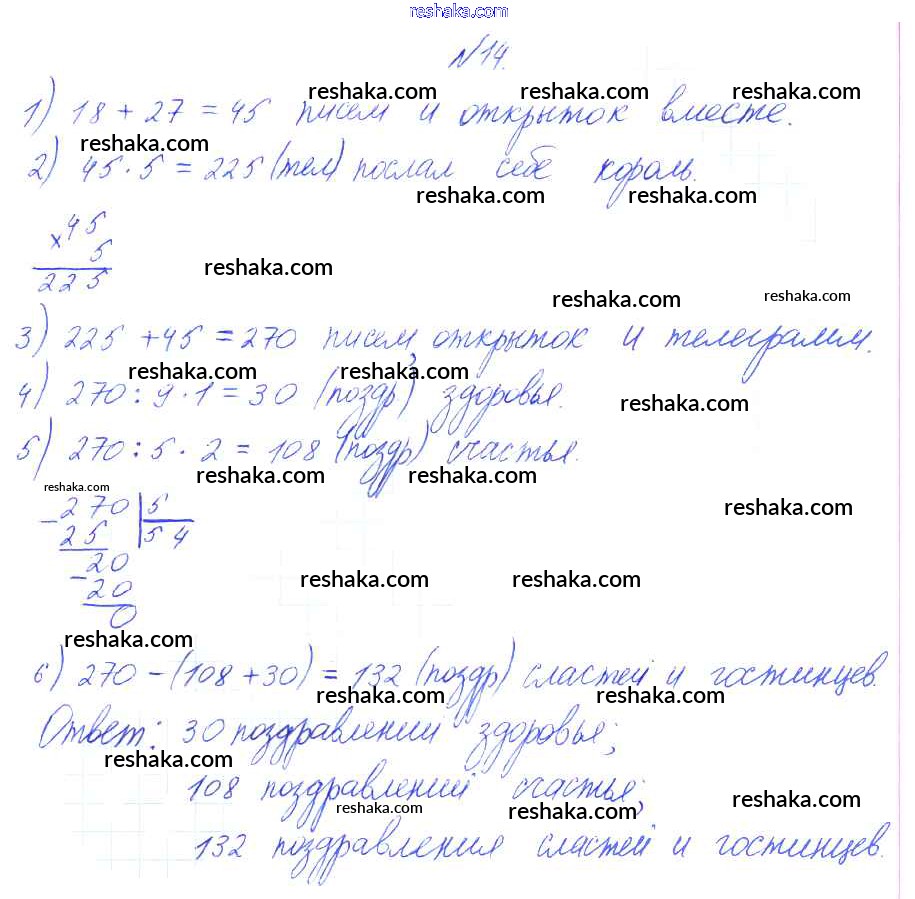 reshaka.com
№14.
reshaka.com reshaka.com reshaka.com
1) 18 + 27 = 45 писем и открыток вместе.
reshaka.com
2) 45 · 5 = 225 (тел) послал себе король.
reshaka.com reshaka.com
× 45
5
225
reshaka.com
reshaka.com reshaka.com
3) 225 + 45 = 270 писем, открыток и телеграмм.
reshaka.com reshaka.com
4) 270 : 9 · 1 = 30 (поздр) здоровья.
reshaka.com
5) 270 : 5 · 2 = 108 (поздр) счастья.
reshaka.com reshaka.com
reshaka.com
reshaka.com
- 270 | 5
25 54
- 20
20
0
reshaka.com reshaka.com
reshaka.com
6) 270 - (108 + 30) = 132 (поздр) сластей и гостинцев.
reshaka.com reshaka.com
Ответ: 30 поздравлений здоровья;
reshaka.com
108 поздравлений счастья;
reshaka.com reshaka.com reshaka.com
132 поздравления сластей и гостинцев.